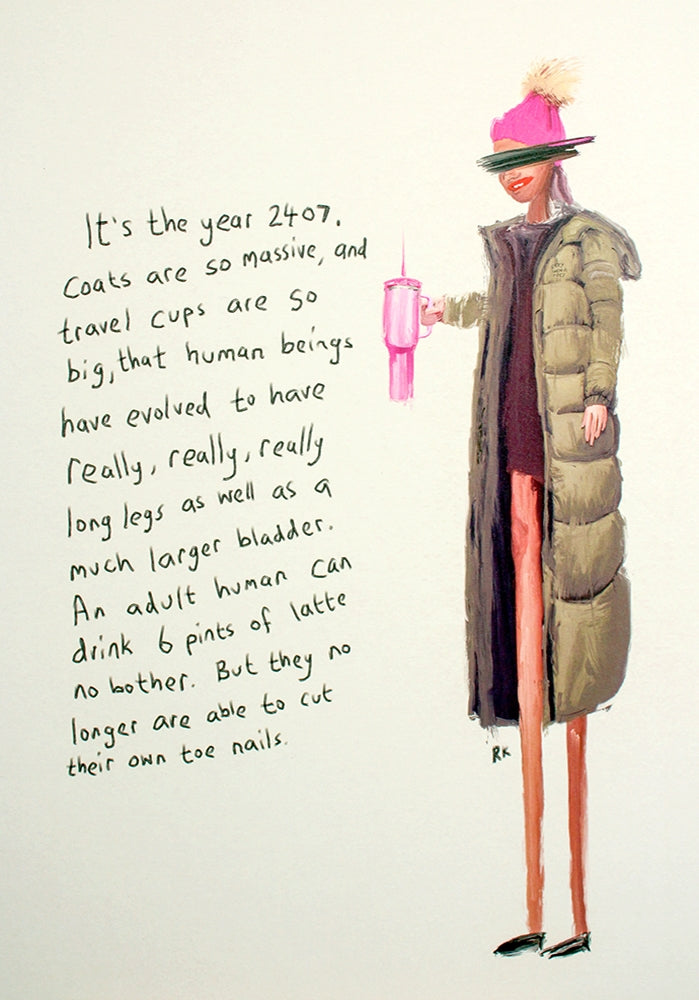 It's the year 2407.
Coats are so massive, and
travel cups are so
big, that human beings
have evolved to have
really, really, really
long legs as well as a
much larger bladder.
An adult human can
drink 6 pints of latte
no bother. But they no
longer are able to cut
their own toe nails.
RK